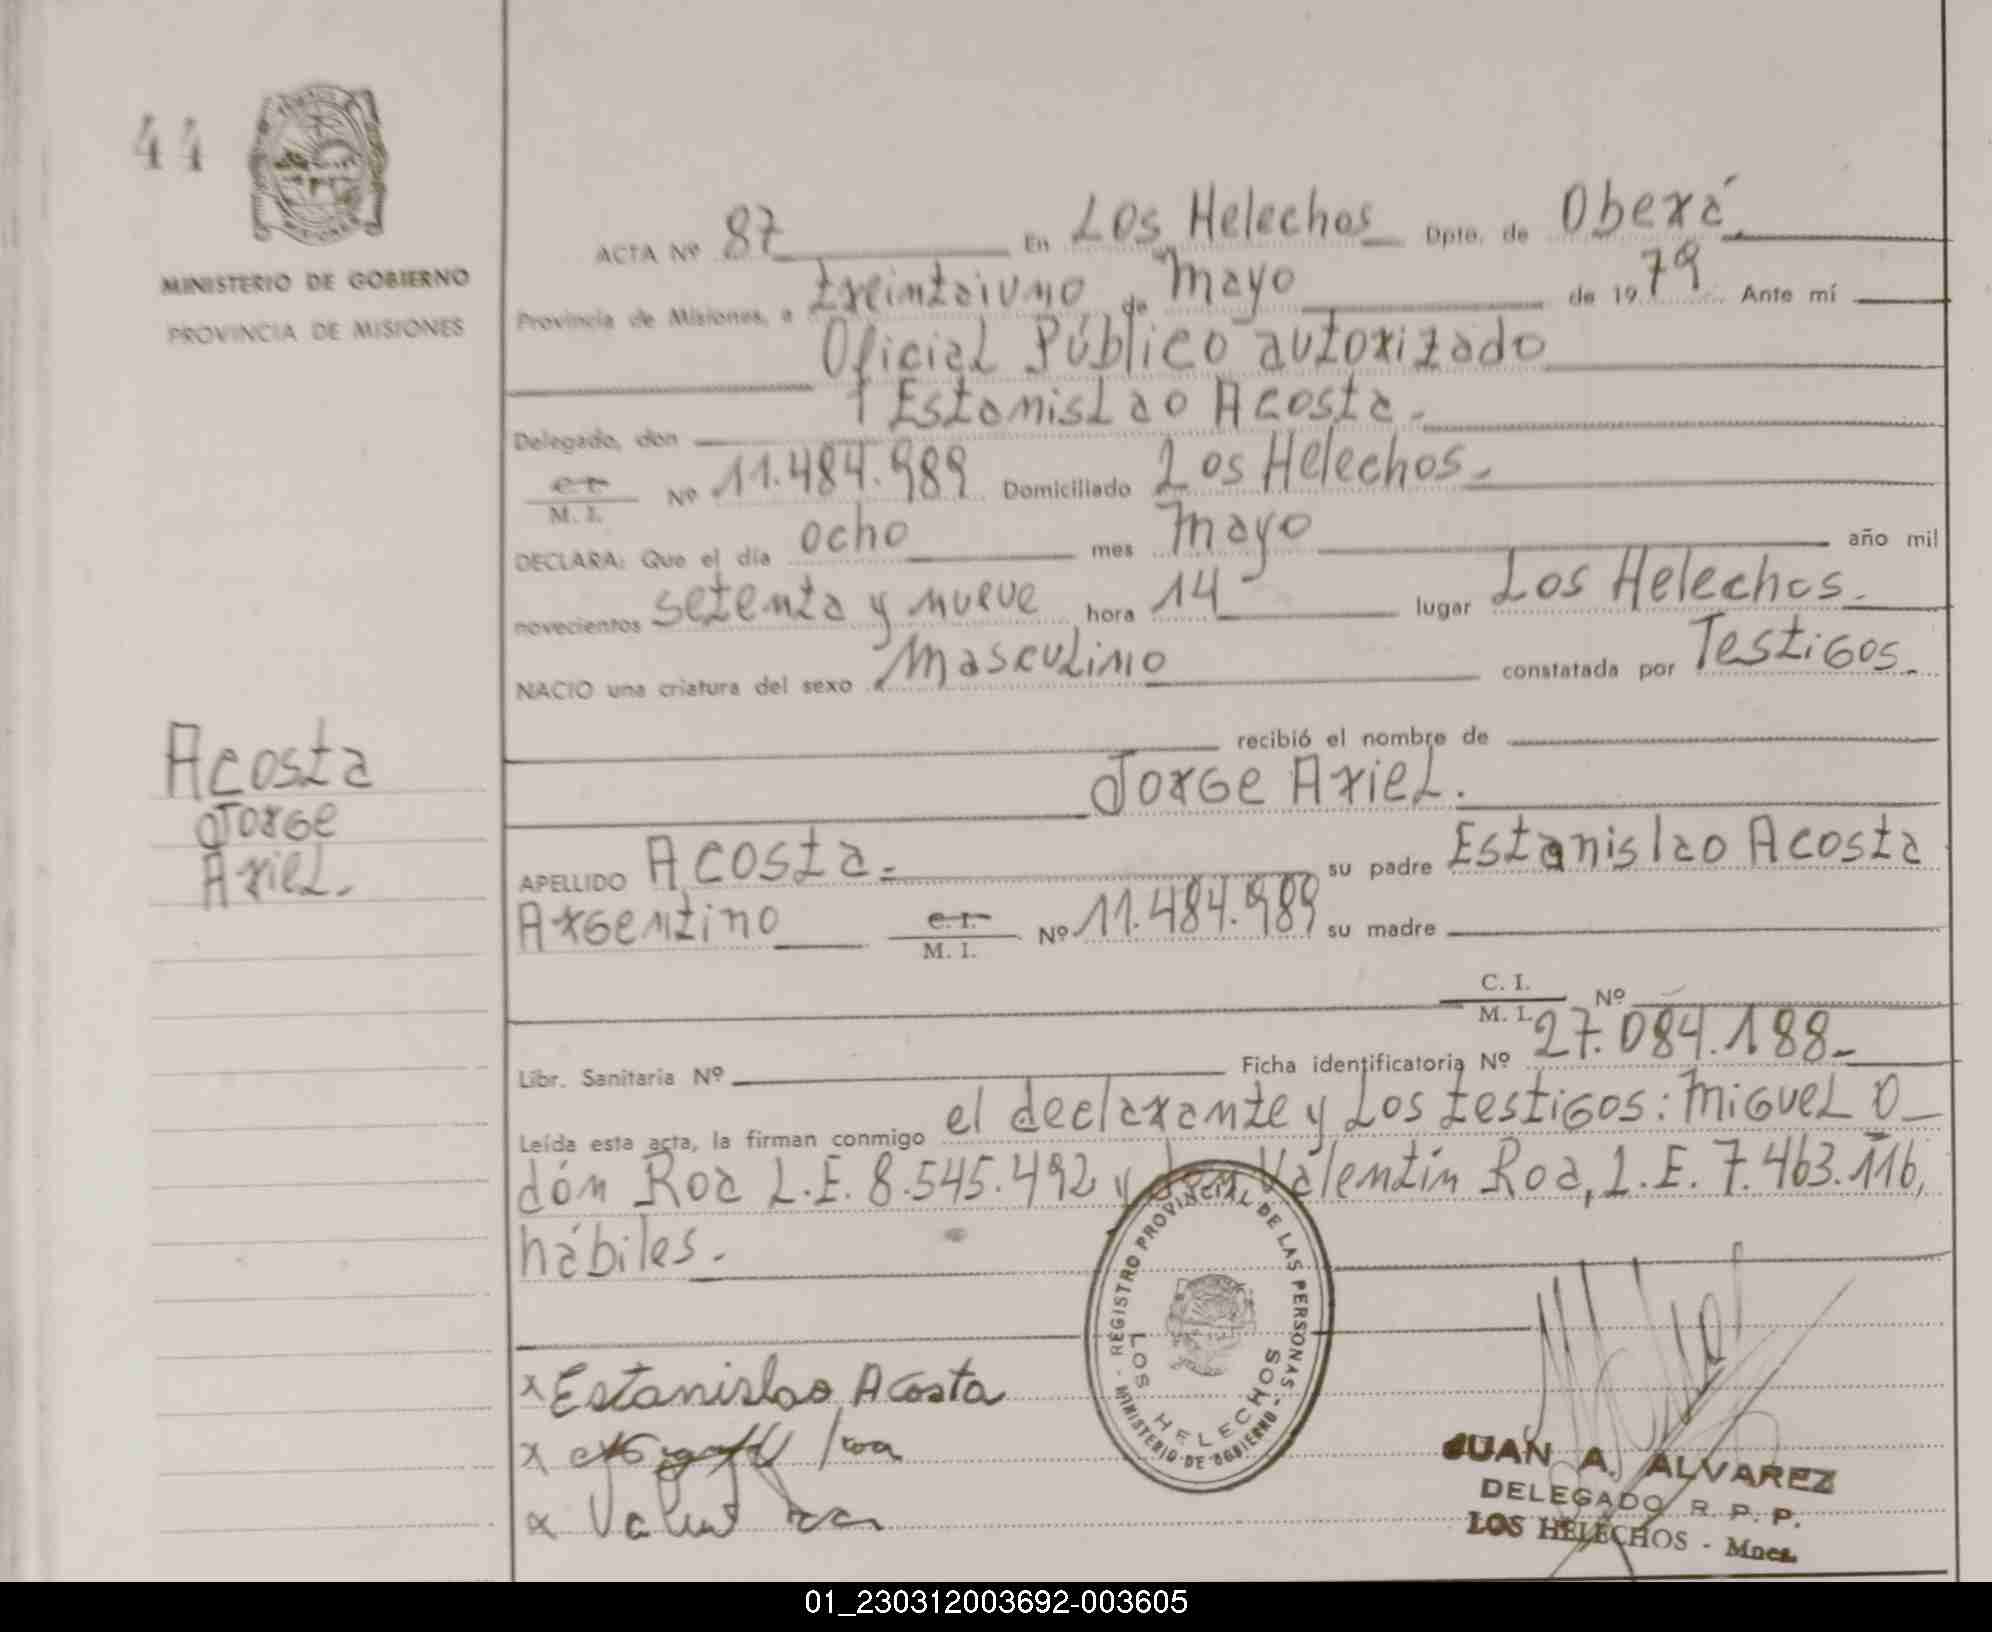 44
MINISTERIO DE GOBIERNO
PROVINCIA DE MISIONES
ACTA Nº 87 En Los Helechos Dpto. de Oberá
Provincia de Misiones, a treintaiuno de Mayo de 1979 Ante mí
Oficial Público autorizado
Delegado, don Estanislao Acosta.
C. I.
M. I. Nº 11.484.989 Domiciliado Los Helechos.
DECLARA: Que el día ocho mes Mayo año mil
novecientos setenta y nueve hora 14 lugar Los Helechos.
NACIO una criatura del sexo Masculino constatada por Testigos.
recibió el nombre de
Jorge Ariel.
Acosta
Jorge
Ariel.
APELLIDO Acosta.= su padre Estanislao Acosta
Argentino C. I. M. I. Nº 11.484.989 su madre
C. I.
M. I. Nº
Libr. Sanitaria Nº Ficha identificatoria Nº 27.084.188.
Leída esta acta, la firman conmigo el declarante y Los testigos: Miguel O_
dón Roa L.E. 8.545.492 y don Valentín Roa, L.E. 7.463.116,
hábiles.
x Estanislao Acosta
x Roa
x
REGISTRO PROVINCIAL DE LAS PERSONAS - MINISTERIO DE GOBIERNO -
LOS HELECHOS
JUAN A. ALVAREZ
DELEGADO R. P. P.
LOS HELECHOS - Mnes.
01_230312003692-003605